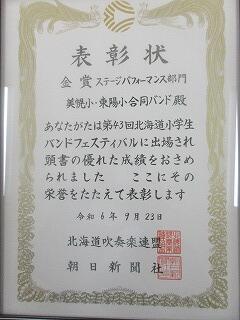 表彰状
金賞 ステージパフォーマンス部門
美幌小・東陽小合同バンド 殿
あなたがたは第43回北海道小学生
バンドフェスティバルに出場され
頭書の優れた成績をおさめ
られました ここにその
栄誉をたたえて表彰します
令和6年9月23日
北海道吹奏楽連盟
朝日新聞社